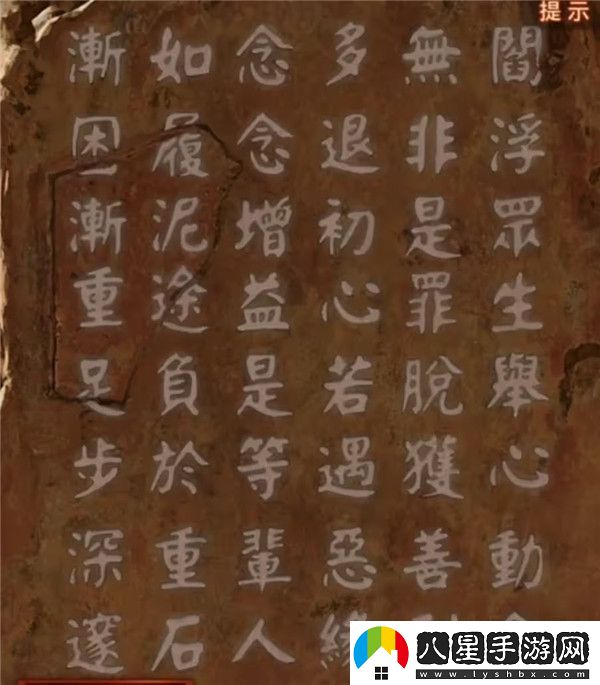 提示
閻浮眾生舉心動
無非是罪脫獲善
多退初心若遇惡緣
念念增益是等輩人
如履泥途負於重石
漸困漸重足步深邃
八星手游网
www.lyshbx.com